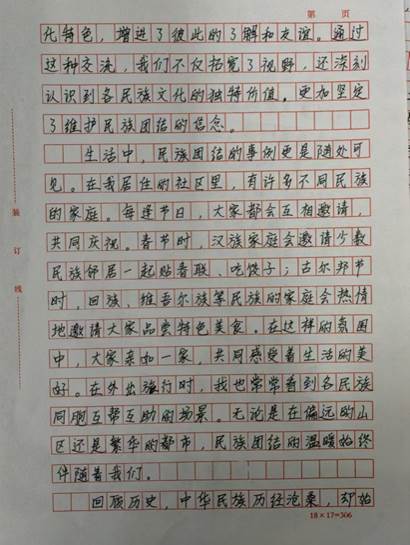 第 页
化特色，增进了彼此的了解和友谊。通过
这种交流，我们不仅拓宽了视野，还深刻
认识到各民族文化的独特价值。更加坚定
了维护民族团结的信念。
生活中，民族团结的事例更是随处可
见。在我居住的社区里，有许多不同民族
的家庭。每逢节日，大家都会互相邀请，
共同庆祝。春节时，汉族家庭会邀请少数
民族邻居一起贴春联、吃饺子；古尔邦节
时，回族、维吾尔族等民族的家庭会热情
地邀请大家品尝特色美食。在这样的氛围
中，大家亲如一家，共同感受着生活的美
好。在外出旅行时，我也常常看到各民族
同胞互帮互助的场景。无论是在偏远的山
区还是繁华的都市，民族团结的温暖始终
伴随着我们。
回顾历史，中华民族历经沧桑，却始
18×17=306
装订线